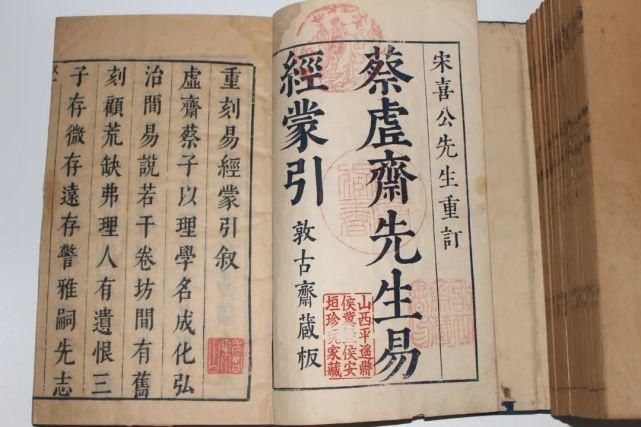 宋喜公先生重訂
蔡虛齋先生易
經蒙引
敦古齋藏板
山西平遙縣
侯安
垣珍家藏
重刻易經蒙引叙
虛齋蔡子以理學名成化弘
治間易說若干卷坊間有舊
刻顧荒缺弗理人有遺恨三
子存微存遠存警雅嗣先志